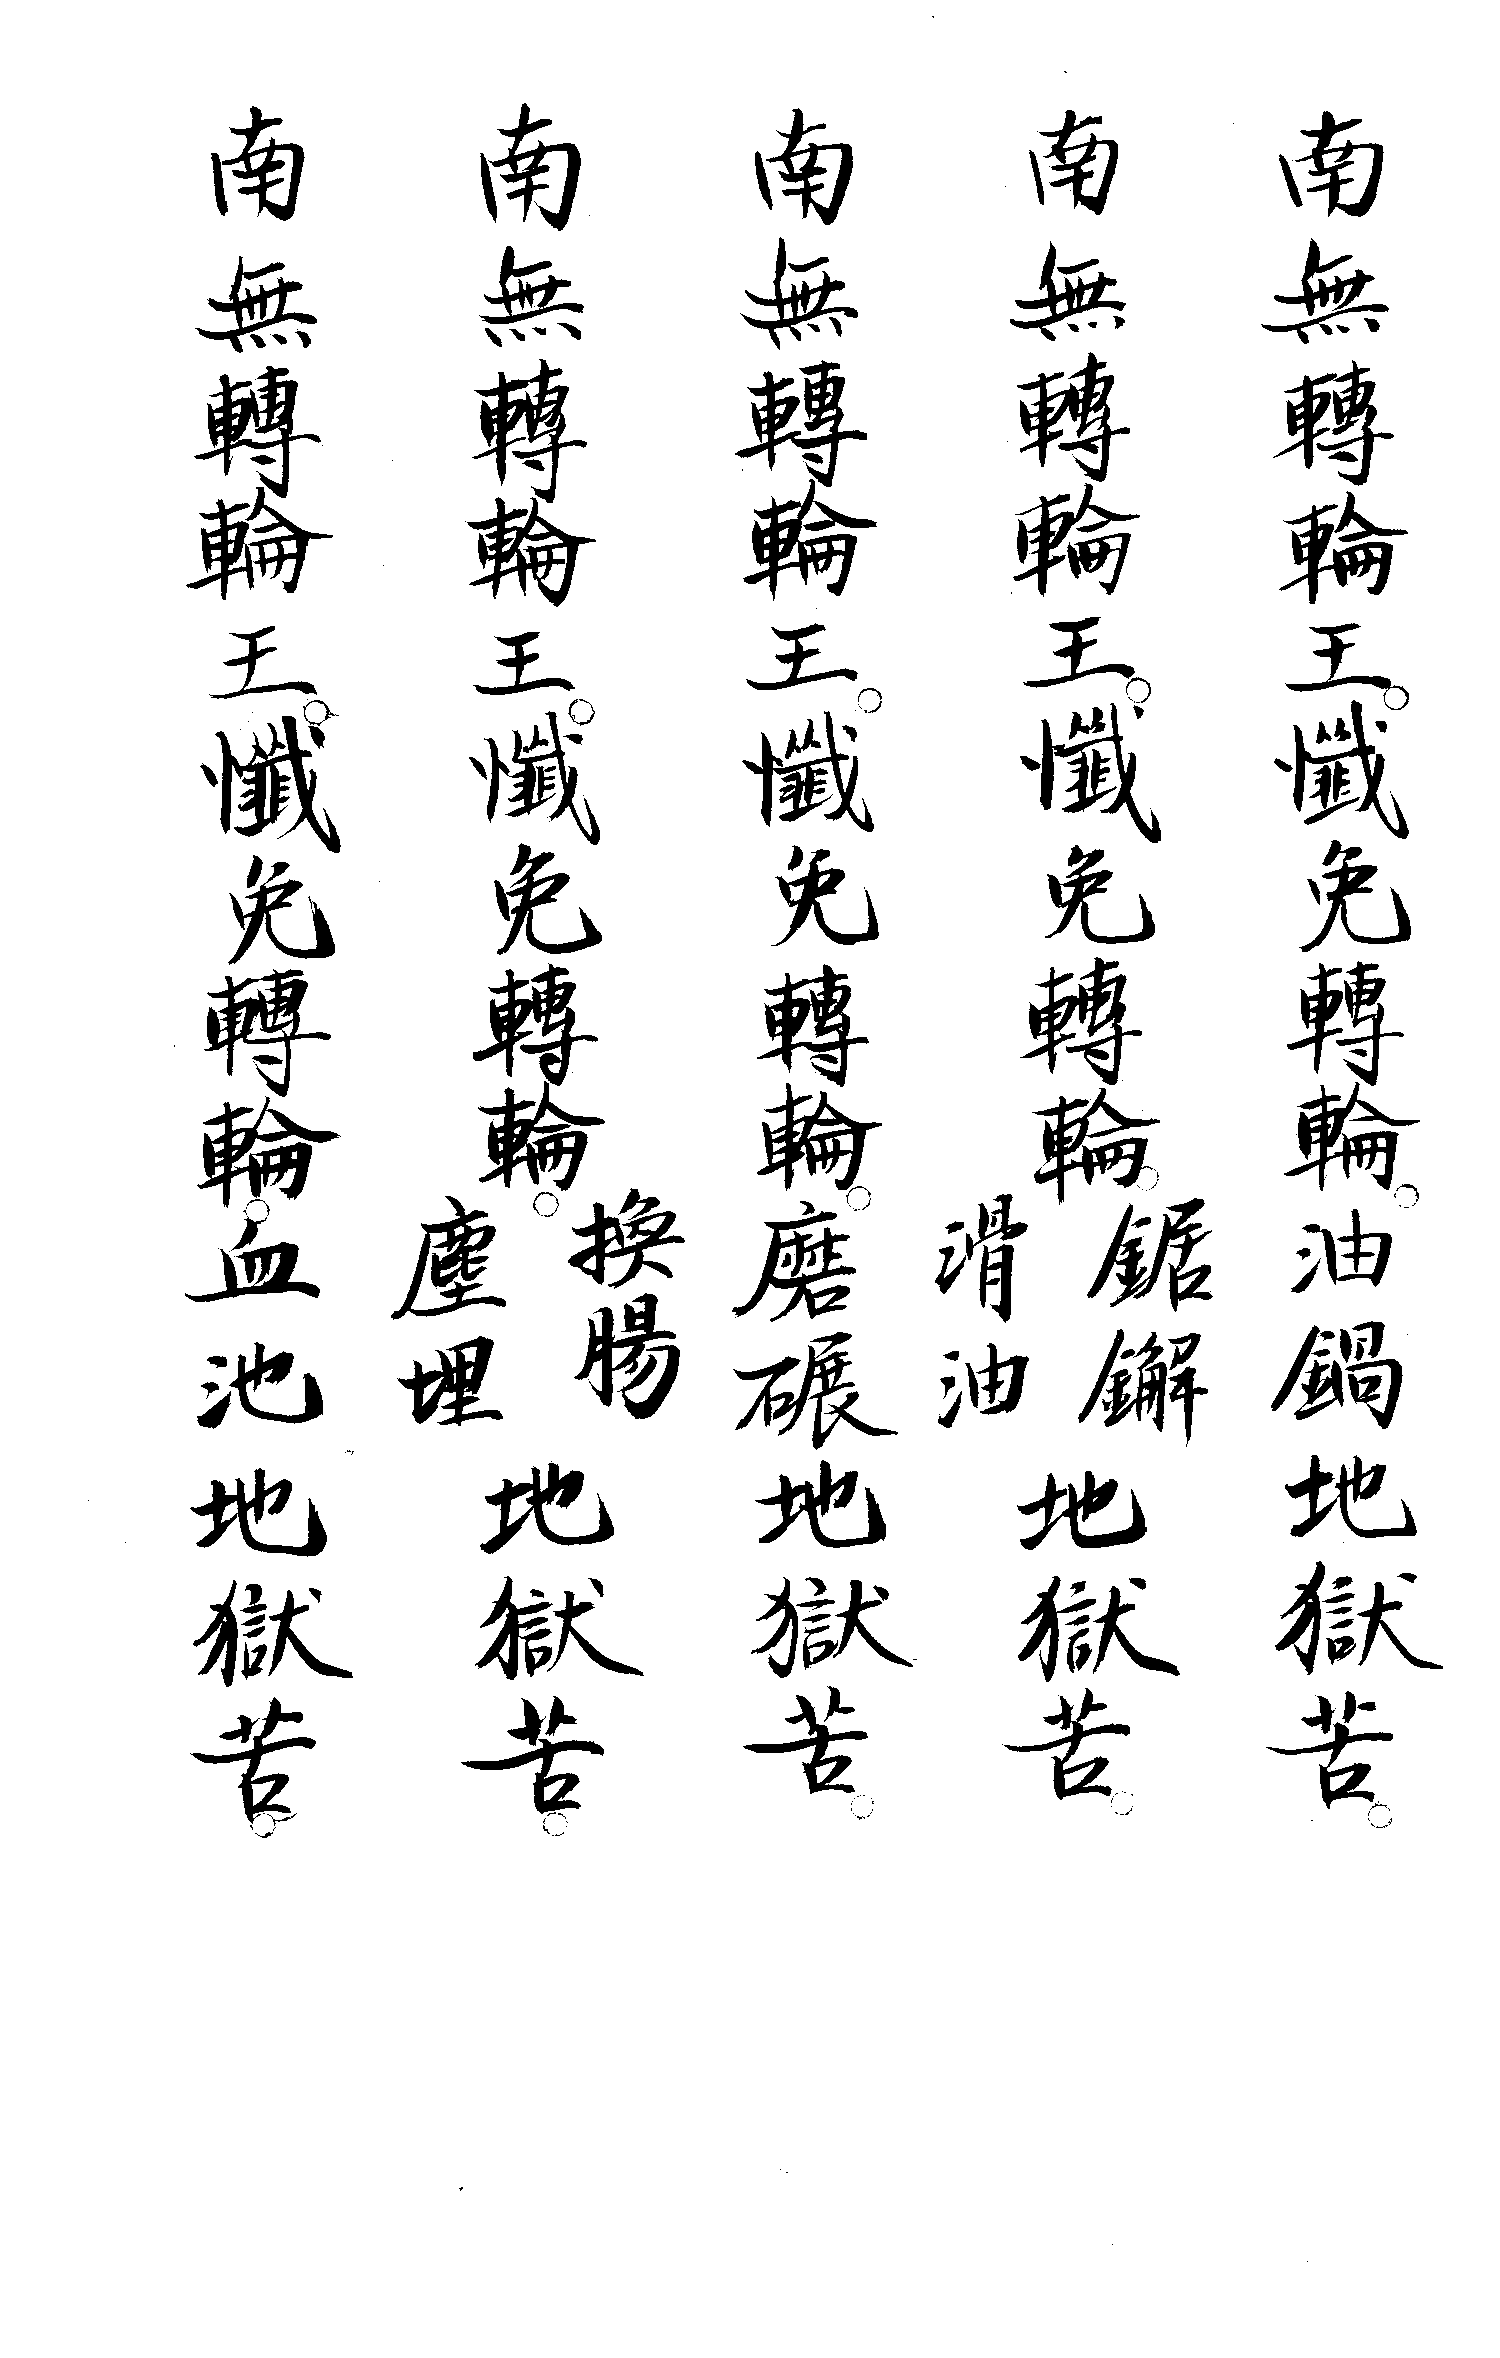 南無轉輪王。懺免轉輪。油鍋地獄苦。
南無轉輪王。懺免轉輪。鋸鐴滑油地獄苦。
南無轉輪王。懺免轉輪。磨碾地獄苦。
南無轉輪王。懺免轉輪。換腸塵埋地獄苦。
南無轉輪王。懺免轉輪。血池地獄苦。